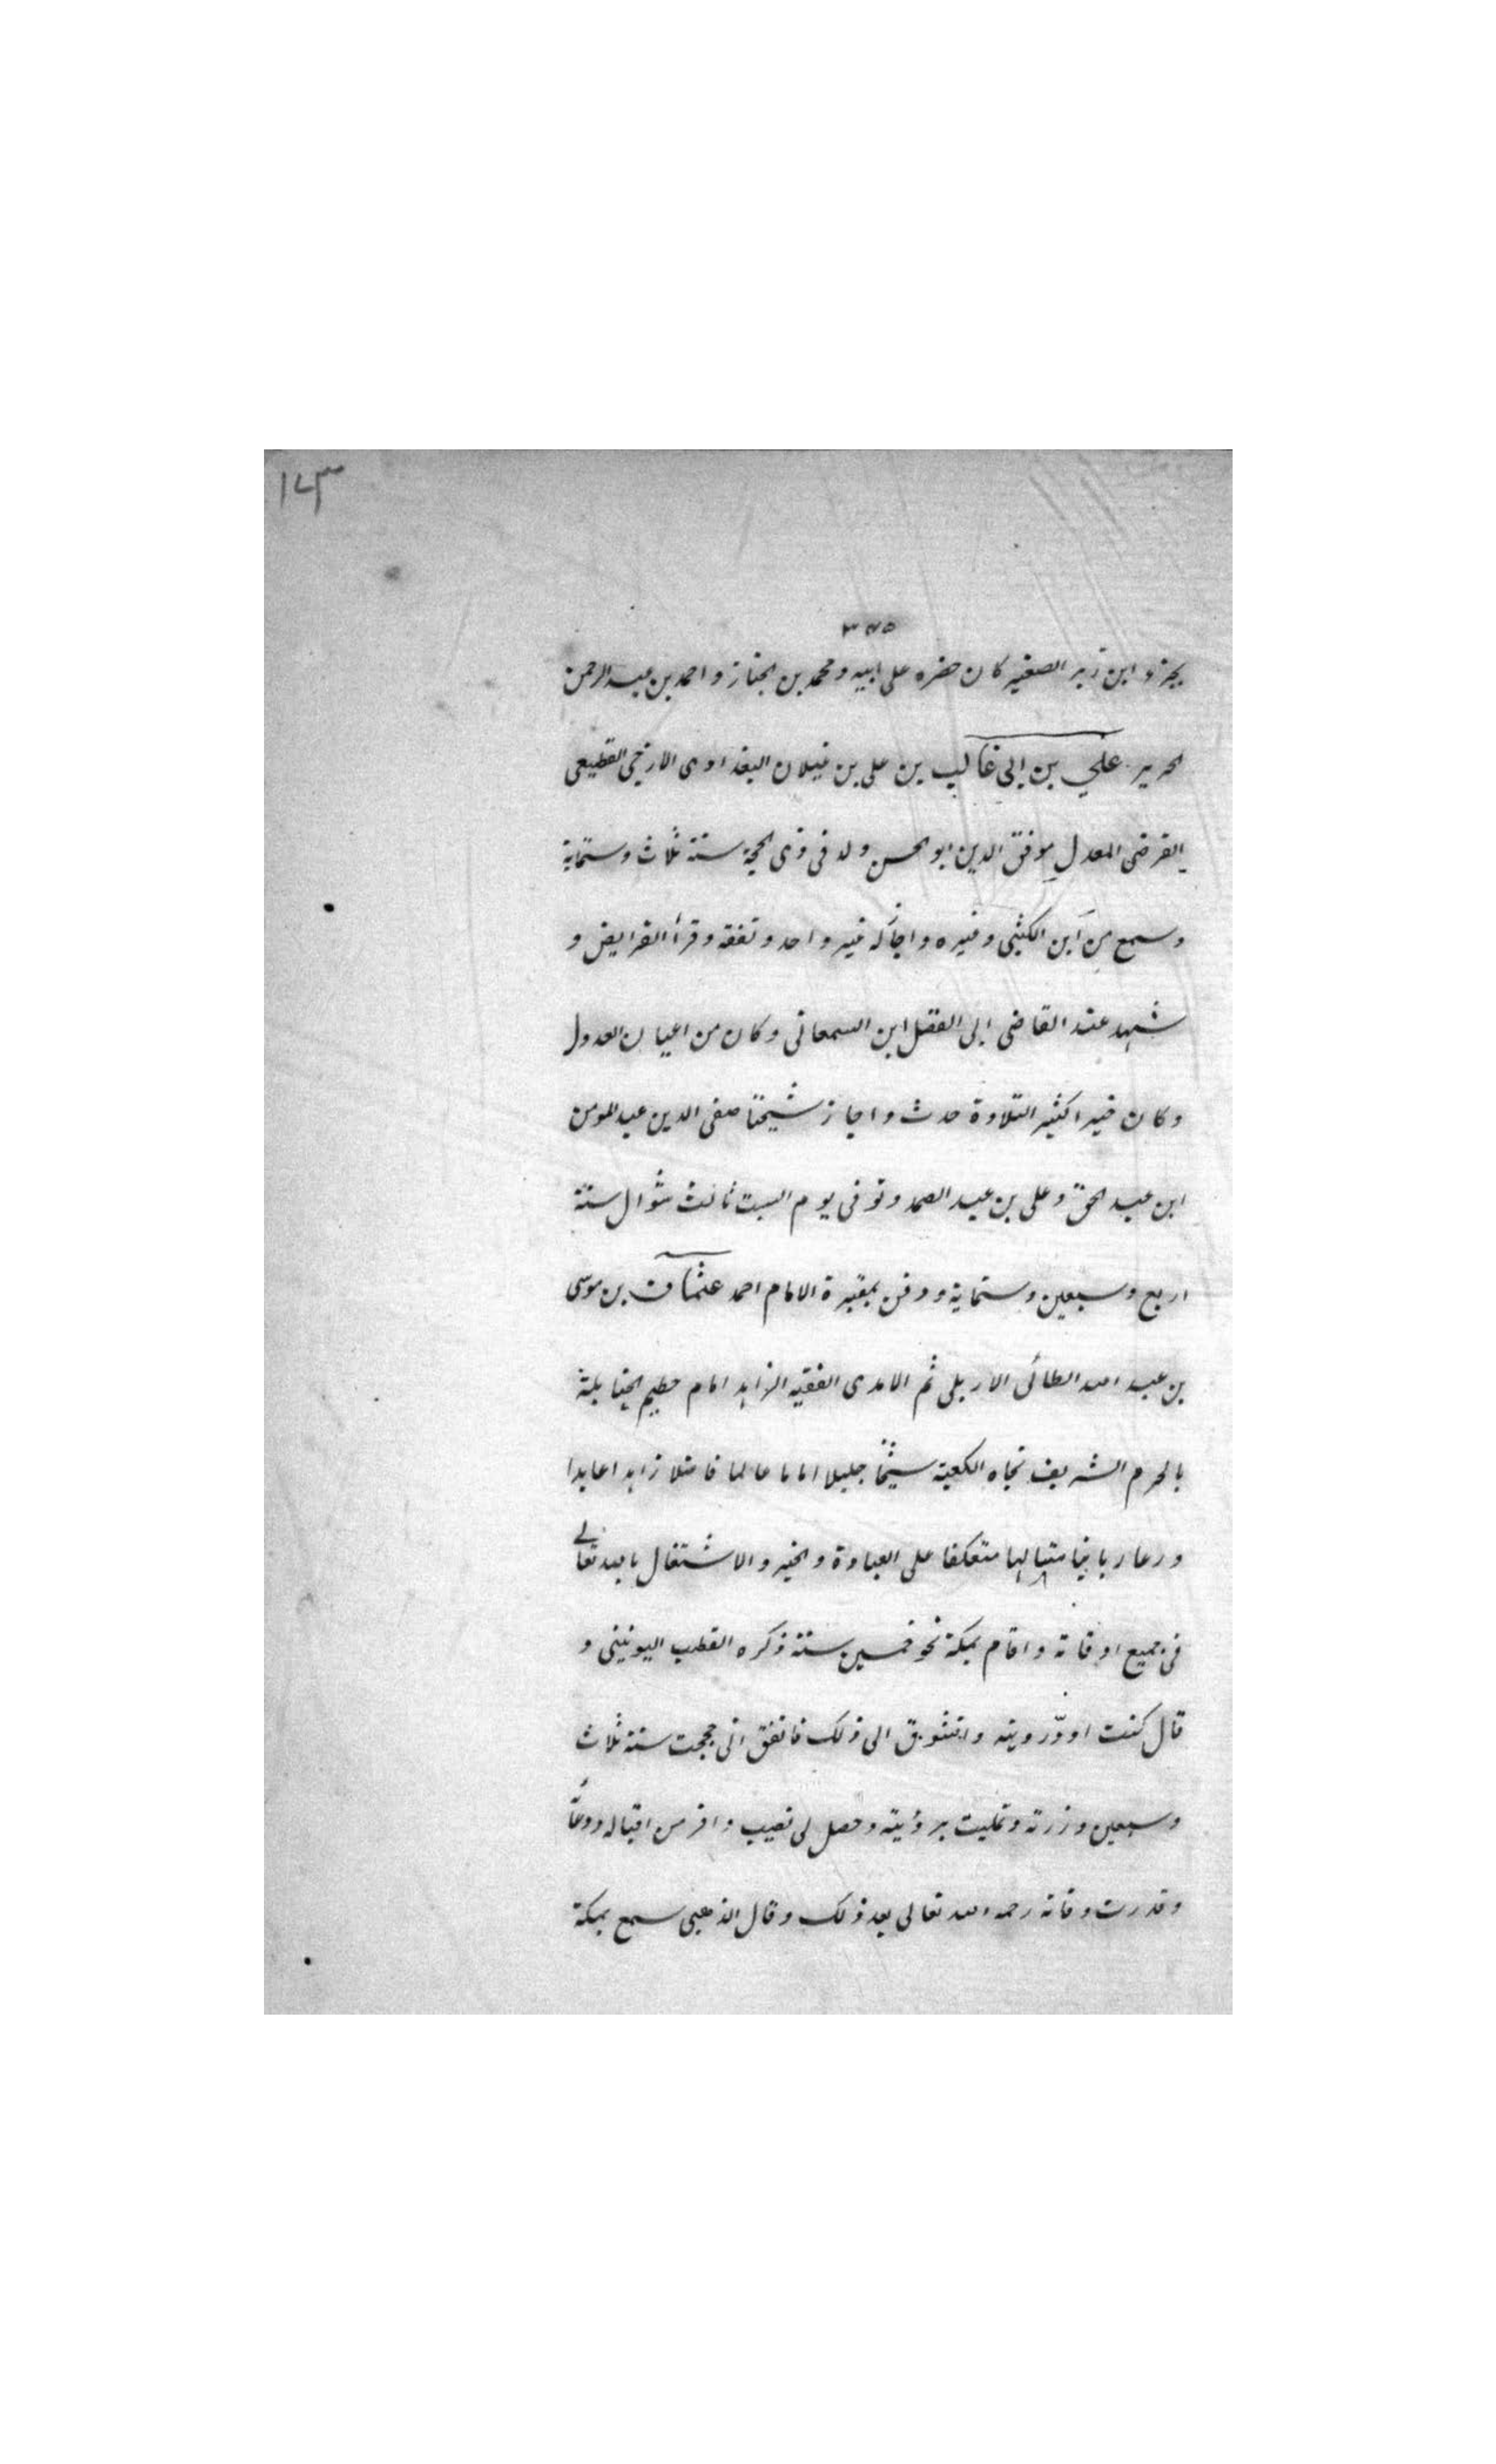 ١٤٣
٣٤٥
بجزء ابن زبر الصغير كان حضره على ابيه ومحمد بن الخباز واحمد بن عبد الرحمن
الحرير علي بن ابي غالب بن علي بن غيلان البغدادى الازجى القطيعى
الفرضى المعدل موفق الدين ابو الحسن ولد فى ذى الحجة سنة ثلاث وستماية
وسمع من ابن الكثبى وغيره واجاز له غير واحد وتفقه وقرأ الفرايض و
شهد عند القاضى ابى الفضل ابن السمعانى وكان من اعيان العدول
وكان خيرا كثير التلاوة حدث واجاز شيخنا صفى الدين عبد المومن
ابن عبد الحق وعلى بن عبد الصمد وتوفى يوم السبت ثالث شوال سنة
اربع وسبعين وستماية ودفن بمقبرة الامام احمد عثمان بن موسى
بن عبد الله الطائى الاربلى ثم الامدى الفقيه الزاهد امام حطيم الحنابلة
بالحرم الشريف تجاه الكعبة شيخا جليلا اماما عالما فاضلا زاهدا عابدا
ورعا ربانيا متالها متعكفا على العبادة والخير والاشتغال بالله تعالى
فى جميع اوقاته واقام بمكة نحو خمسين سنة ذكره القطب اليونينى و
قال كنت اودّ رويته واتشوق الى ذلك فاتفق انى حججت سنة ثلاث
وسبعين وزرته وتمليت برؤيته وحصل لى نصيب وافر من اقباله ودعائه
وقدرت وفاته رحمه الله تعالى بعد ذلك وقال الذهبى سمع بمكة